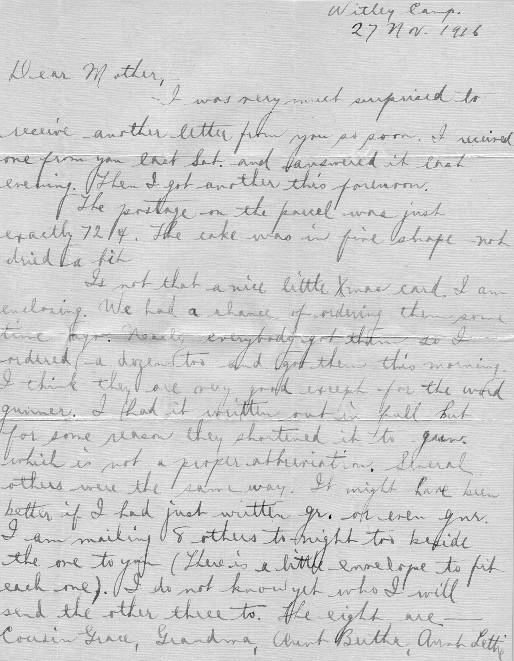 Witley Camp.
27 Nov. 1916
Dear Mother,
I was very much surprised to
receive another letter from you so soon. I received
one from you last Sat. and answered it last
evening. Then I got another this forenoon.
The postage on the parcel was just
exactly 72 ¢. The cake was in fine shape not
dried a bit
Is not that a nice little Xmas card I am
enclosing. We had a chance of ordering them some
time ago. Nearly everybody got them so I
ordered a dozen too and got them this morning.
I think they are very good except for the word
gunner. I had it written out in full but
for some reason they shortened it to gun.
which is not a proper abbreviation. Several
others were the same way. It might have been
better if I had just written gr. or even gnr.
I am mailing 8 others to-night too beside
the one to you (There is a little envelope to fit
each one). I do not know yet who I will
send the other three to. The eight are —
Cousin Grace, Grandma, Aunt Bertha, Aunt Lettie